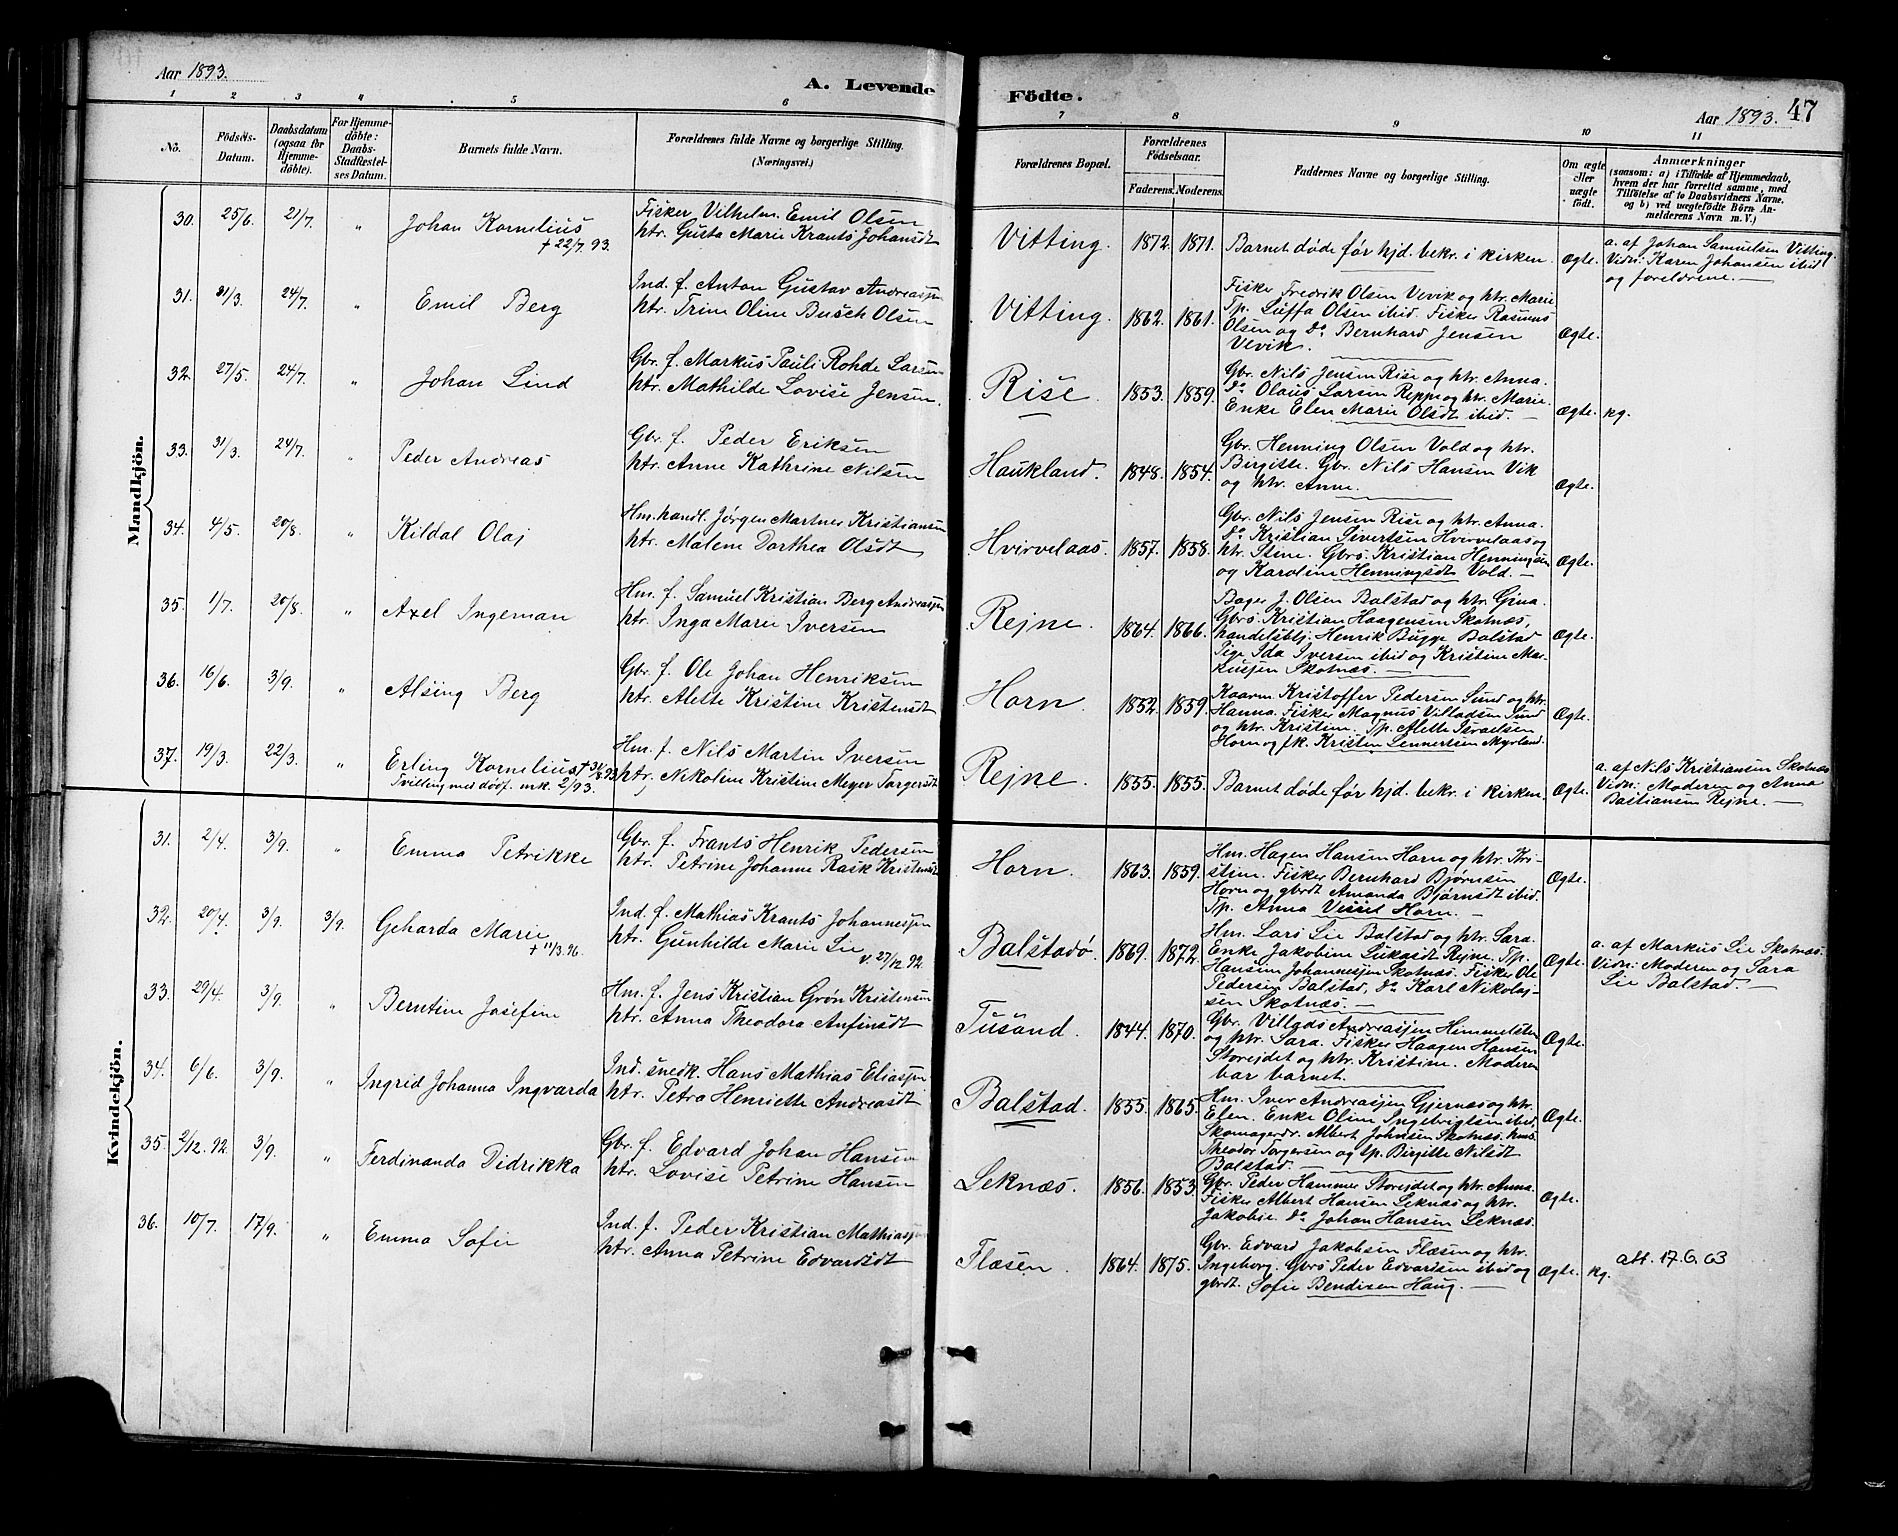 Aar 1893.
A. Levende
Födte.
Aar 1893.
47
1 2 3 4 5 6 7 8 9 10 11
No.
Födsels-Datum.
Daabsdatum (ogsaa for Hjemme-döbte).
For Hjemme-döbte: Daabs-Stadfæstel-ses Datum.
Barnets fulde Navn.
Forældrenes fulde Navne og borgerlige Stilling. (Næringsvei.)
Forældrenes Bopæl.
Forældrenes Födselsaar.
Faderens. Moderens.
Faddernes Navne og borgerlige Stilling.
Om ægte eller uægte födt.
Anmærkninger
(saasom: a) i Tilfælde af Hjemmedaab, hvem der har forrettet samme, med Tilföielse af to Daabsvidners Navne, og b) ved uægtefödte Börn Anmelderens Navn m. V.)
Mandkjön.
30. 25/6. 21/7. " Johan Kornelius
+ 22/7 93.
Fisker Vilhelm Emil Olsen
htr. Gusta Marie Krants Johansdt
Vitting. 1872. 1871.
Barnet døde før hjd. bekr. i kirken. Ægte.
a. af Johan Samuelsen Vitting.
Vidn: Karen Johansen ibid
og foreldrene. —
31. 31/3. 24/7. " Emil Berg
Ind. f. Anton Gustav Andreassen
htr. Trine Oline Busch Olsen
Vitting. 1862. 1861.
Fisker Fredrik Olsen Vevik og htr. Marie
Tp. Luffa Olsen ibid. Fisker Rasmus
Olsen og do Bernhard Jensen
Vevik. Ægte.
32. 27/5. 24/7. " Johan Lind
Gbr. f. Markus Pauli Rohde Larsen
htr. Mathilde Lovise Jensen.
Rise. 1853. 1859.
Gbr. Nils Jensen Rise og htr. Anna.
do Olaus Larsen Reppe og htr. Marie.
Enke Elen Marie Olsdt ibid. — Ægte. kg.
33. 31/3. 24/7. " Peder Andreas
Gbr. f. Peder Eriksen
htr. Anne Kathrine Nilsen
Haukland. 1848. 1854.
Gbr. Henning Olsen Vold og htr.
Birgitte. Gbr. Nils Hansen Vik
og htr. Anne. Ægte.
34. 4/5. 20/8. " Kildal Olaj
Hm. handl. Jørgen Martner Kristiansen
htr. Malene Dorthea Olsdt
Hvirvelaas. 1857. 1858.
Gbr. Nils Jensen Rise og htr. Anna.
do Kristian Sivertsen Hvirvelaas og
htr. Stine. Gbrs. Kristian Henningsen
og Karoline Henningsdt Vold. — Ægte.
35. 1/7. 20/8. " Axel Ingeman
Hm. f. Samuel Kristian Berg Andreassen
htr. Inga Marie Iversen
Rejne. 1864. 1866.
Bager J. Olsen Balstad og htr. Gina.
Gbrs. Kristian Haagensen Skotnæs,
handelsbtj. Henrik Bugge Balstad
Pige Ida Iversen ibid og Kristine Mar-
kussen Skotnæs. — Ægte.
36. 16/6. 3/9. " Alsing Berg
Gbr. f. Ole Johan Henriksen
htr. Alette Kristine Kristensdt
Horn. 1852. 1859.
Kaarm. Kristoffer Pedersen Sund og htr.
Hanna. Fisker Magnus Villadsen Sund
og htr. Kristine. Tp. Alette Israelsen
Horn og fk. Kristen Lennertsen Myrland. Ægte.
37. 19/3. 22/3. " Erling Kornelius + 31/8 93
Tvilling med dødf. mk. 2/93.
Hm. f. Nils Martin Iversen
htr. Nikoline Kristine Meyer Torgersdt
Rejne. 1855. 1855.
Barnet døde før hjd. bekr. i kirken. Ægte.
a. af Nils Kristiansen Skotnæs
Vidn: Moderen og Anna
Bastiansen Rejne. —
Kvindekjön.
31. 2/4. 3/9. " Emma Petrikke
Gbr. f. Frants Henrik Pedersen
htr. Petrine Johanne Rask Kristensdt
Horn. 1863. 1859.
Hm. Hagen Hansen Horn og htr. Kri-
stine. Fisker Bernhard Bjørnsen
Horn og gbrdt Amanda Bjørnsdt ibid.
Tp. Anna Vessel Horn. — Ægte.
32. 20/4. 3/9. 3/9. Geharda Marie
+ 11/3.96.
Ind. f. Mathias Krants Johannessen
htr. Gunhilde Marie Lie
v. 27/12. 92.
Balstadø. 1869. 1872.
Hm. Lars Lie Balstad og htr. Sara.
Enke Jakobine Lukasdt Rejne. Tp.
Hansine Johannessen Skotnæs. Fisker Ole
Pedersen Balstad, do Karl Nikolaj-
sen Skotnæs. — Ægte.
a. af Markus Lie Skotnæs.
Vidn: Moderen og Sara
Lie Balstad. —
33. 29/4. 3/9. " Berntine Josefine
Hm. f. Jens Kristian Grøn Kristensen
htr. Anna Theodora Anfinsdt
Tusand. 1844. 1870.
Gbr. Villads Andreassen Himmelsten
og htr. Sara. Fisker Haagen Hansen
Storejdet og htr. Kristine. Moderen
bar barnet. Ægte.
34. 6/6. 3/9. " Ingrid Johanna Ingvarda
Ind. snedk. Hans Mathias Eliassen
htr. Petra Henriette Andreasdt
Balstad. 1855. 1865.
Hm. Iver Andreassen Gjernæs og htr.
Elen. Enke Oline Ingebrigtsen ibid.
Skomagerdr. Albert Johnsen Skotnæs. hms.
Theodor Torgersen og tp. Birgitte Nilsdt
Balstad. — Ægte.
35. 2/12. 92. 3/9. " Ferdinanda Didrikka
Gbr. f. Edvard Johan Hansen
htr. Lovise Petrine Hansen
Leknæs. 1856. 1853.
Gbr. Peder Hammer Storejdet og htr. Anna.
Fisker Albert Hansen Leknæs og htr.
Jakobie. do Johan Hansen Leknæs. Ægte.
36. 10/7. 17/9. " Emma Sofie
Ind. f. Peder Kristian Mathiassen
htr. Anna Petrine Edvardsdt
Flæsen. 1864. 1875.
Gbr. Edvard Jakobsen Flæsen og htr.
Ingeborg. Gbrs Peder Edvardsen ibid og
gbrdt. Sofie Bendisen Haug. — Ægte. kg.
att. 17.6.63